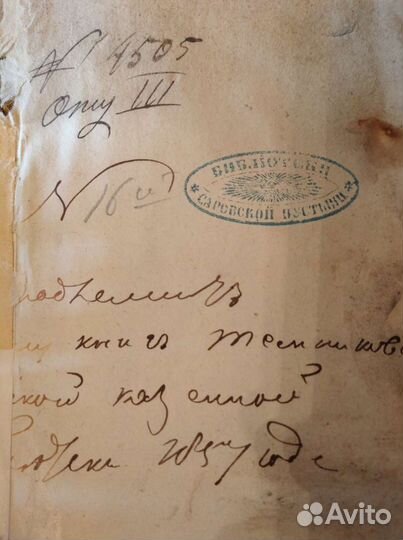 № 4505
Отд III
№ 16й
БИБЛІОТЕКИ
САРОВСКОЙ ПУСТЫНИ
книгъ Темников
ской казенной
1857 годе
Avito